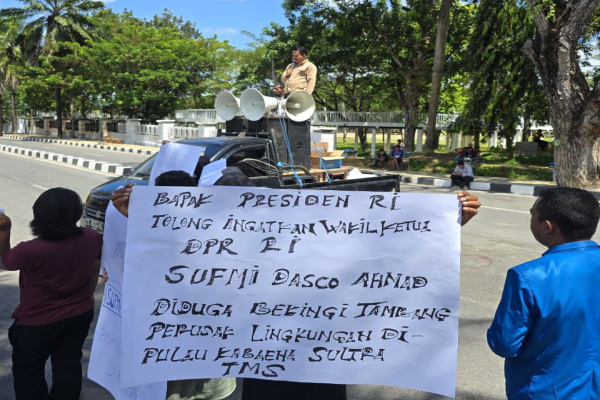 BAPAK PRESIDEN RI
TOLONG INGATKAN WAKIL KETUA
DPR RI
SUFMI DASCO AHMAD
DIDUGA BEKINGI TAMBANG
PERUSAK LINGKUNGAN DI-
PULAU KABAENA SULTRA
TMS